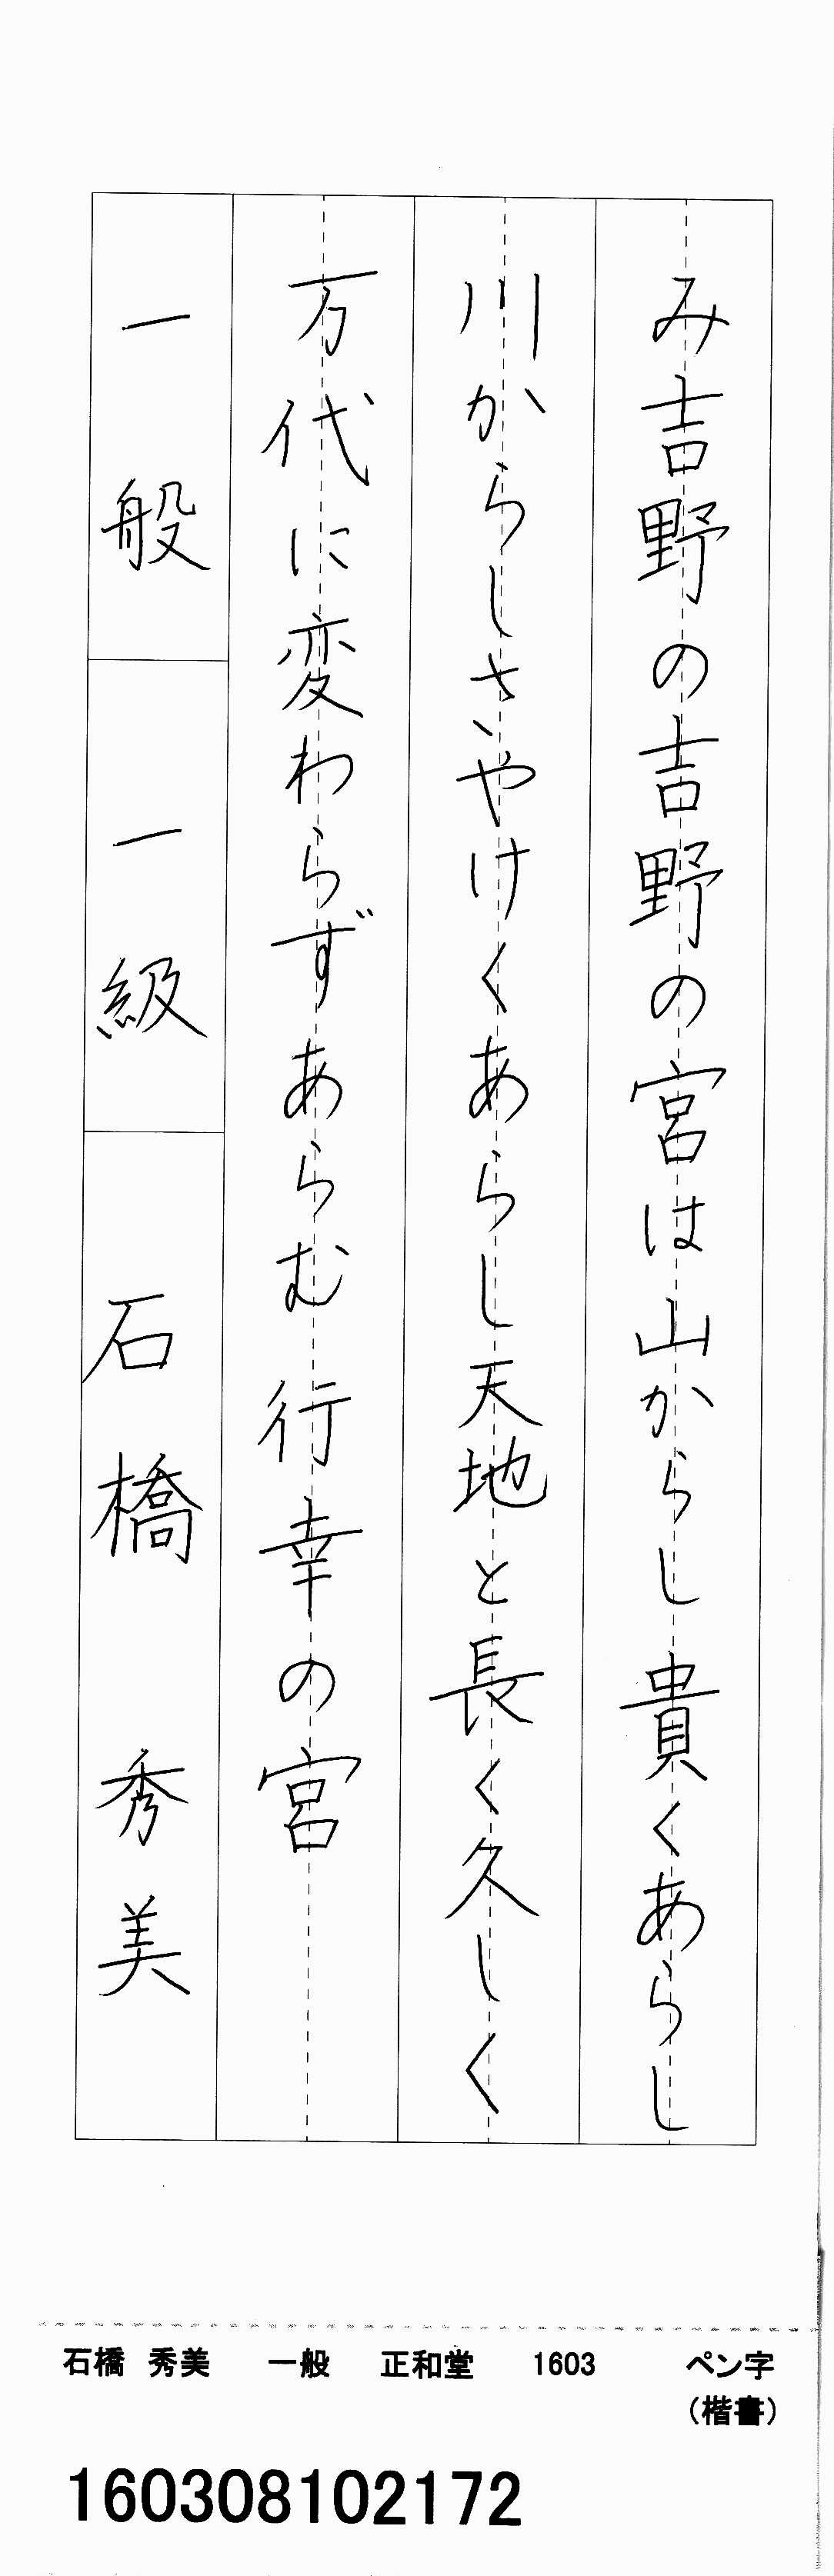 み吉野の吉野の宮は山からし貴くあらし
川からしさやけくあらし天地と長く久しく
万代に変わらずあらむ行幸の宮
一般 一級 石橋 秀美
石橋 秀美 一般 正和堂 1603 ペン字
(楷書)
160308102172